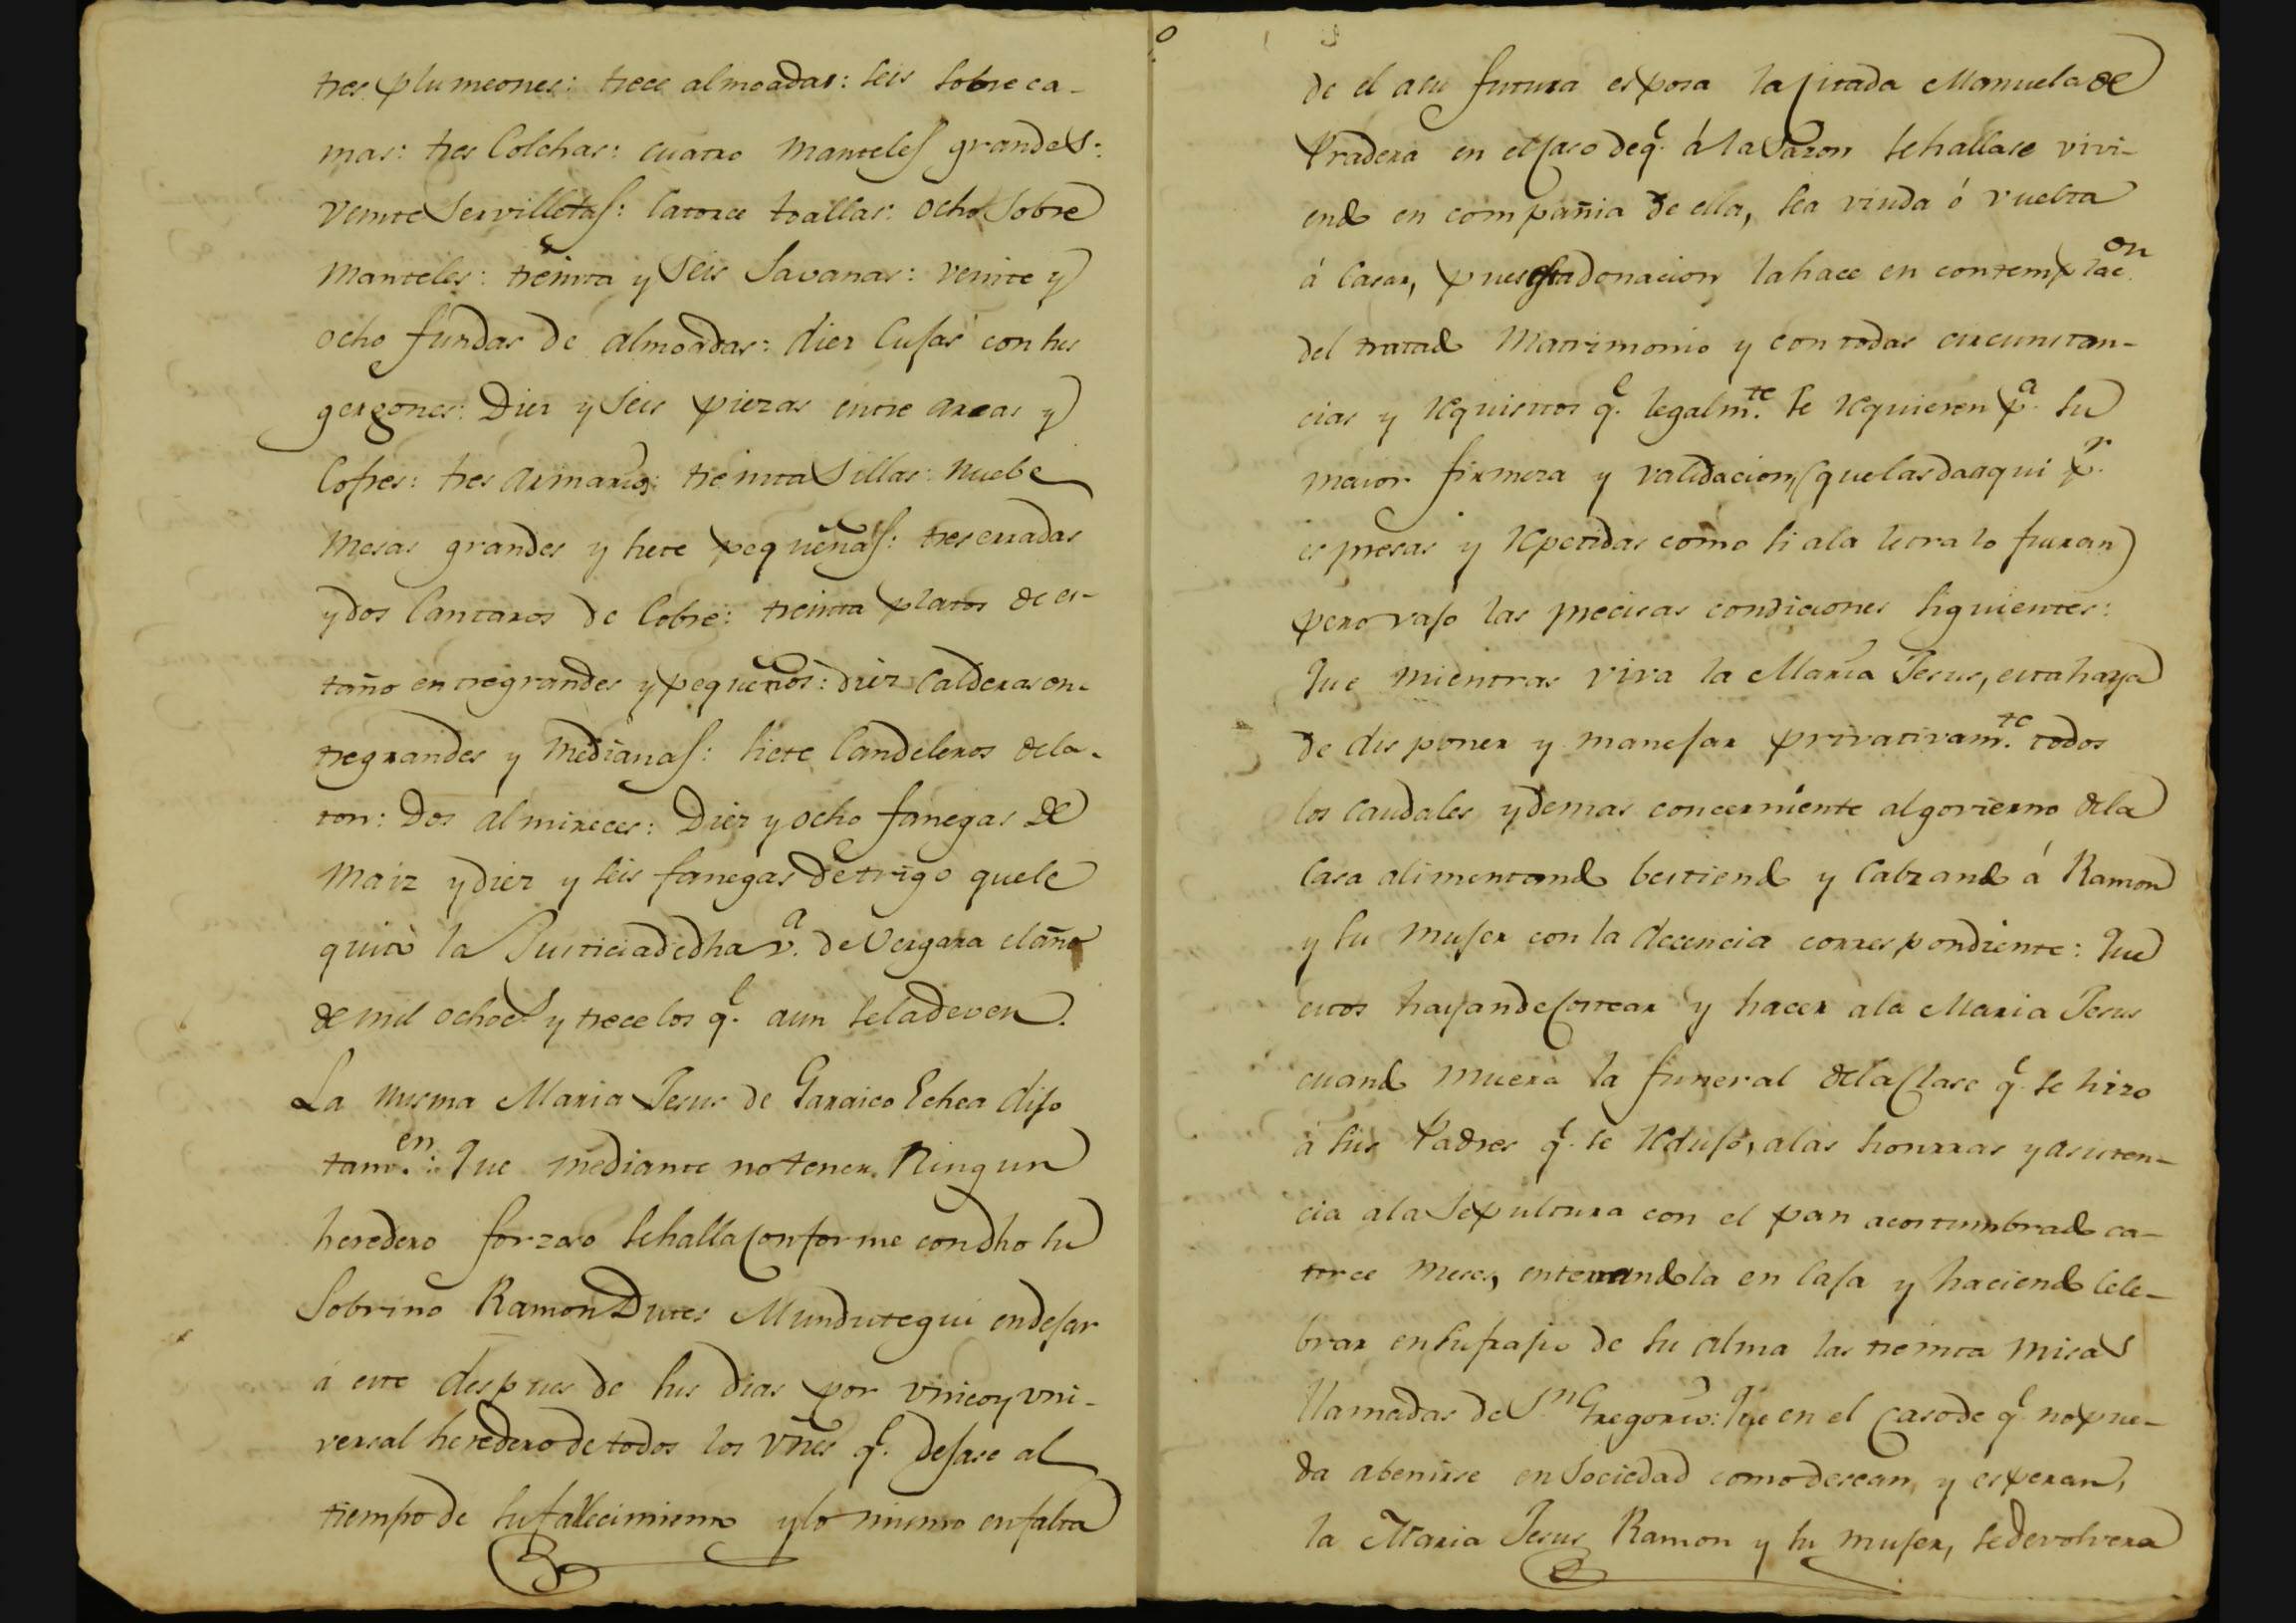 tres plumeones: trece almoadas: seis sobreca-
mas: tres Colchas: cuatro manteles grandes:
veinte Servilletas: Catorce toallas: ocho Sobre
manteles: treinta y Seis Savanas: veinte y
ocho fundas de almoadas: diez Cujas con sus
gergones: Diez y Seis piezas entre arcas y
Cofres: tres armarios: treinta Sillas: nuebe
mesas grandes y siete pequeñas: tres erradas
y dos Cantaros de Cobre: treinta platos de es-
taño entre grandes y pequeños: diez Calderas en-
tre grandes y medianas: siete Candeleros de la-
ton: Dos almireces: Diez y ocho fanegas de
maiz y diez y seis fanegas de trigo que le
quitó la Justicia de dha v.ª de Vergara el año
de mil ochocs. y trece los q.e aun se la deven.
La misma Maria Jesus de Garaico Echea dijo
tamv.en: Que mediante no tener Ningun
heredero forzoso se halla Conforme con dho su
Sobrino Ramon Dutes Mundutegui en dejar
á este despues de sus dias por vnico y vni-
versal heredero de todos los Vnes q.e dejase al
tiempo de su fallecimiento y lo mismo en falta
de el a su futura esposa la Citada Manuela de
Pradera en el Caso de q.e á la Sazon se hallase vivi-
endo en compañia de ella, sea viuda ó vuelta
á Casar, pues esta donacion la hace en contemplac.on
del tratado Matrimonio y con todas circunstan-
cias y requisitos q.e legalm.te se requieren p.a su
maior firmeza y validacion (que las da aqui p.r
espresas y repetidas como si a la letra lo fueran)
pero vajo las precisas condiciones siguientes:
Que mientras viva la Maria Jesus, esta haya
de disponer y manejar privativam.te todos
los Caudales y demas concerniente al govierno de la
Casa alimentando bestiendo y Calzando á Ramon
y su mujer con la decencia correspondiente: Que
estos hayan de Costear y hacer a la Maria Jesus
cuando muera la funeral de la Clase q.e se hizo
á sus Padres q.e se redujo, a las honrras y asisten-
cia a la Sepultura con el pan acostumbrado ca-
torce meses, enterrandola en Caja y haciendo Cele-
brar en sufrajio de su alma las treinta misas
llamadas de S.n Gregorio: Que en el Caso de q.e no pue-
da abenirse en Sociedad como desean, y esperan,
la Maria Jesus Ramon y su mujer, se devolvera